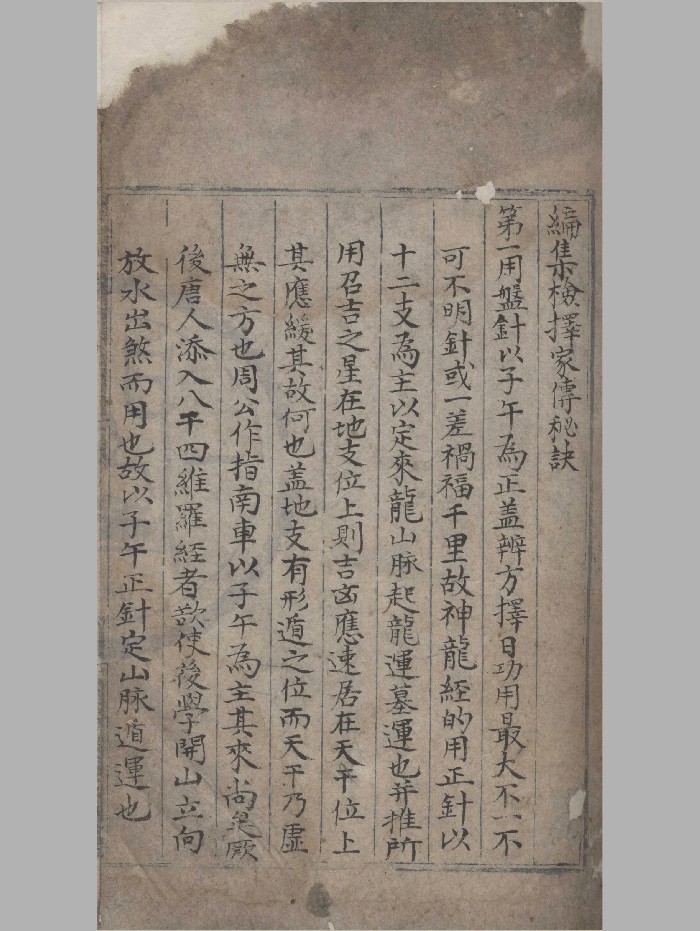 編集檢擇家傳秘訣
第一用盤針以子午為正盖辨方擇日功用最大不一不
可不明針或一差禍福千里故神龍經的用正針以
十二支為主以定來龍山脉起龍運墓運也并推所
用召吉之星在地支位上則吉凶應速居在天干位上
其應緩其故何也盖地支有形遁之位而天干乃虛
無之方也周公作指南車以子午為主其來尚矣厥
後唐人添入八干四維羅經者欲使後學開山立向
放水出煞而用也故以子午正針定山脉遁運也